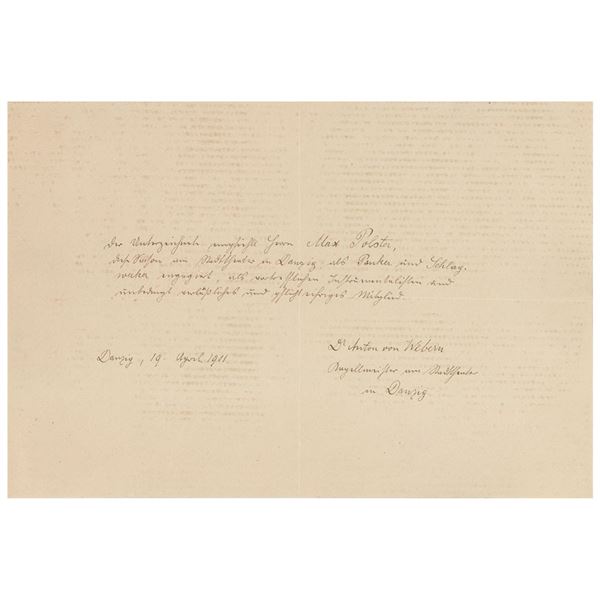 Der Unterzeichnete empfiehlt Herrn Max Polster,
diese Saison am Stadttheater in Danzig als Pauker und Schlag-
werker engagiert, als vortrefflichen Instrumentalisten und
unbedingt verläßliches und pflichteifriges Mitglied.
Danzig, 19. April 1911.
Dr Anton von Webern
Kapellmeister am Stadttheater
in Danzig